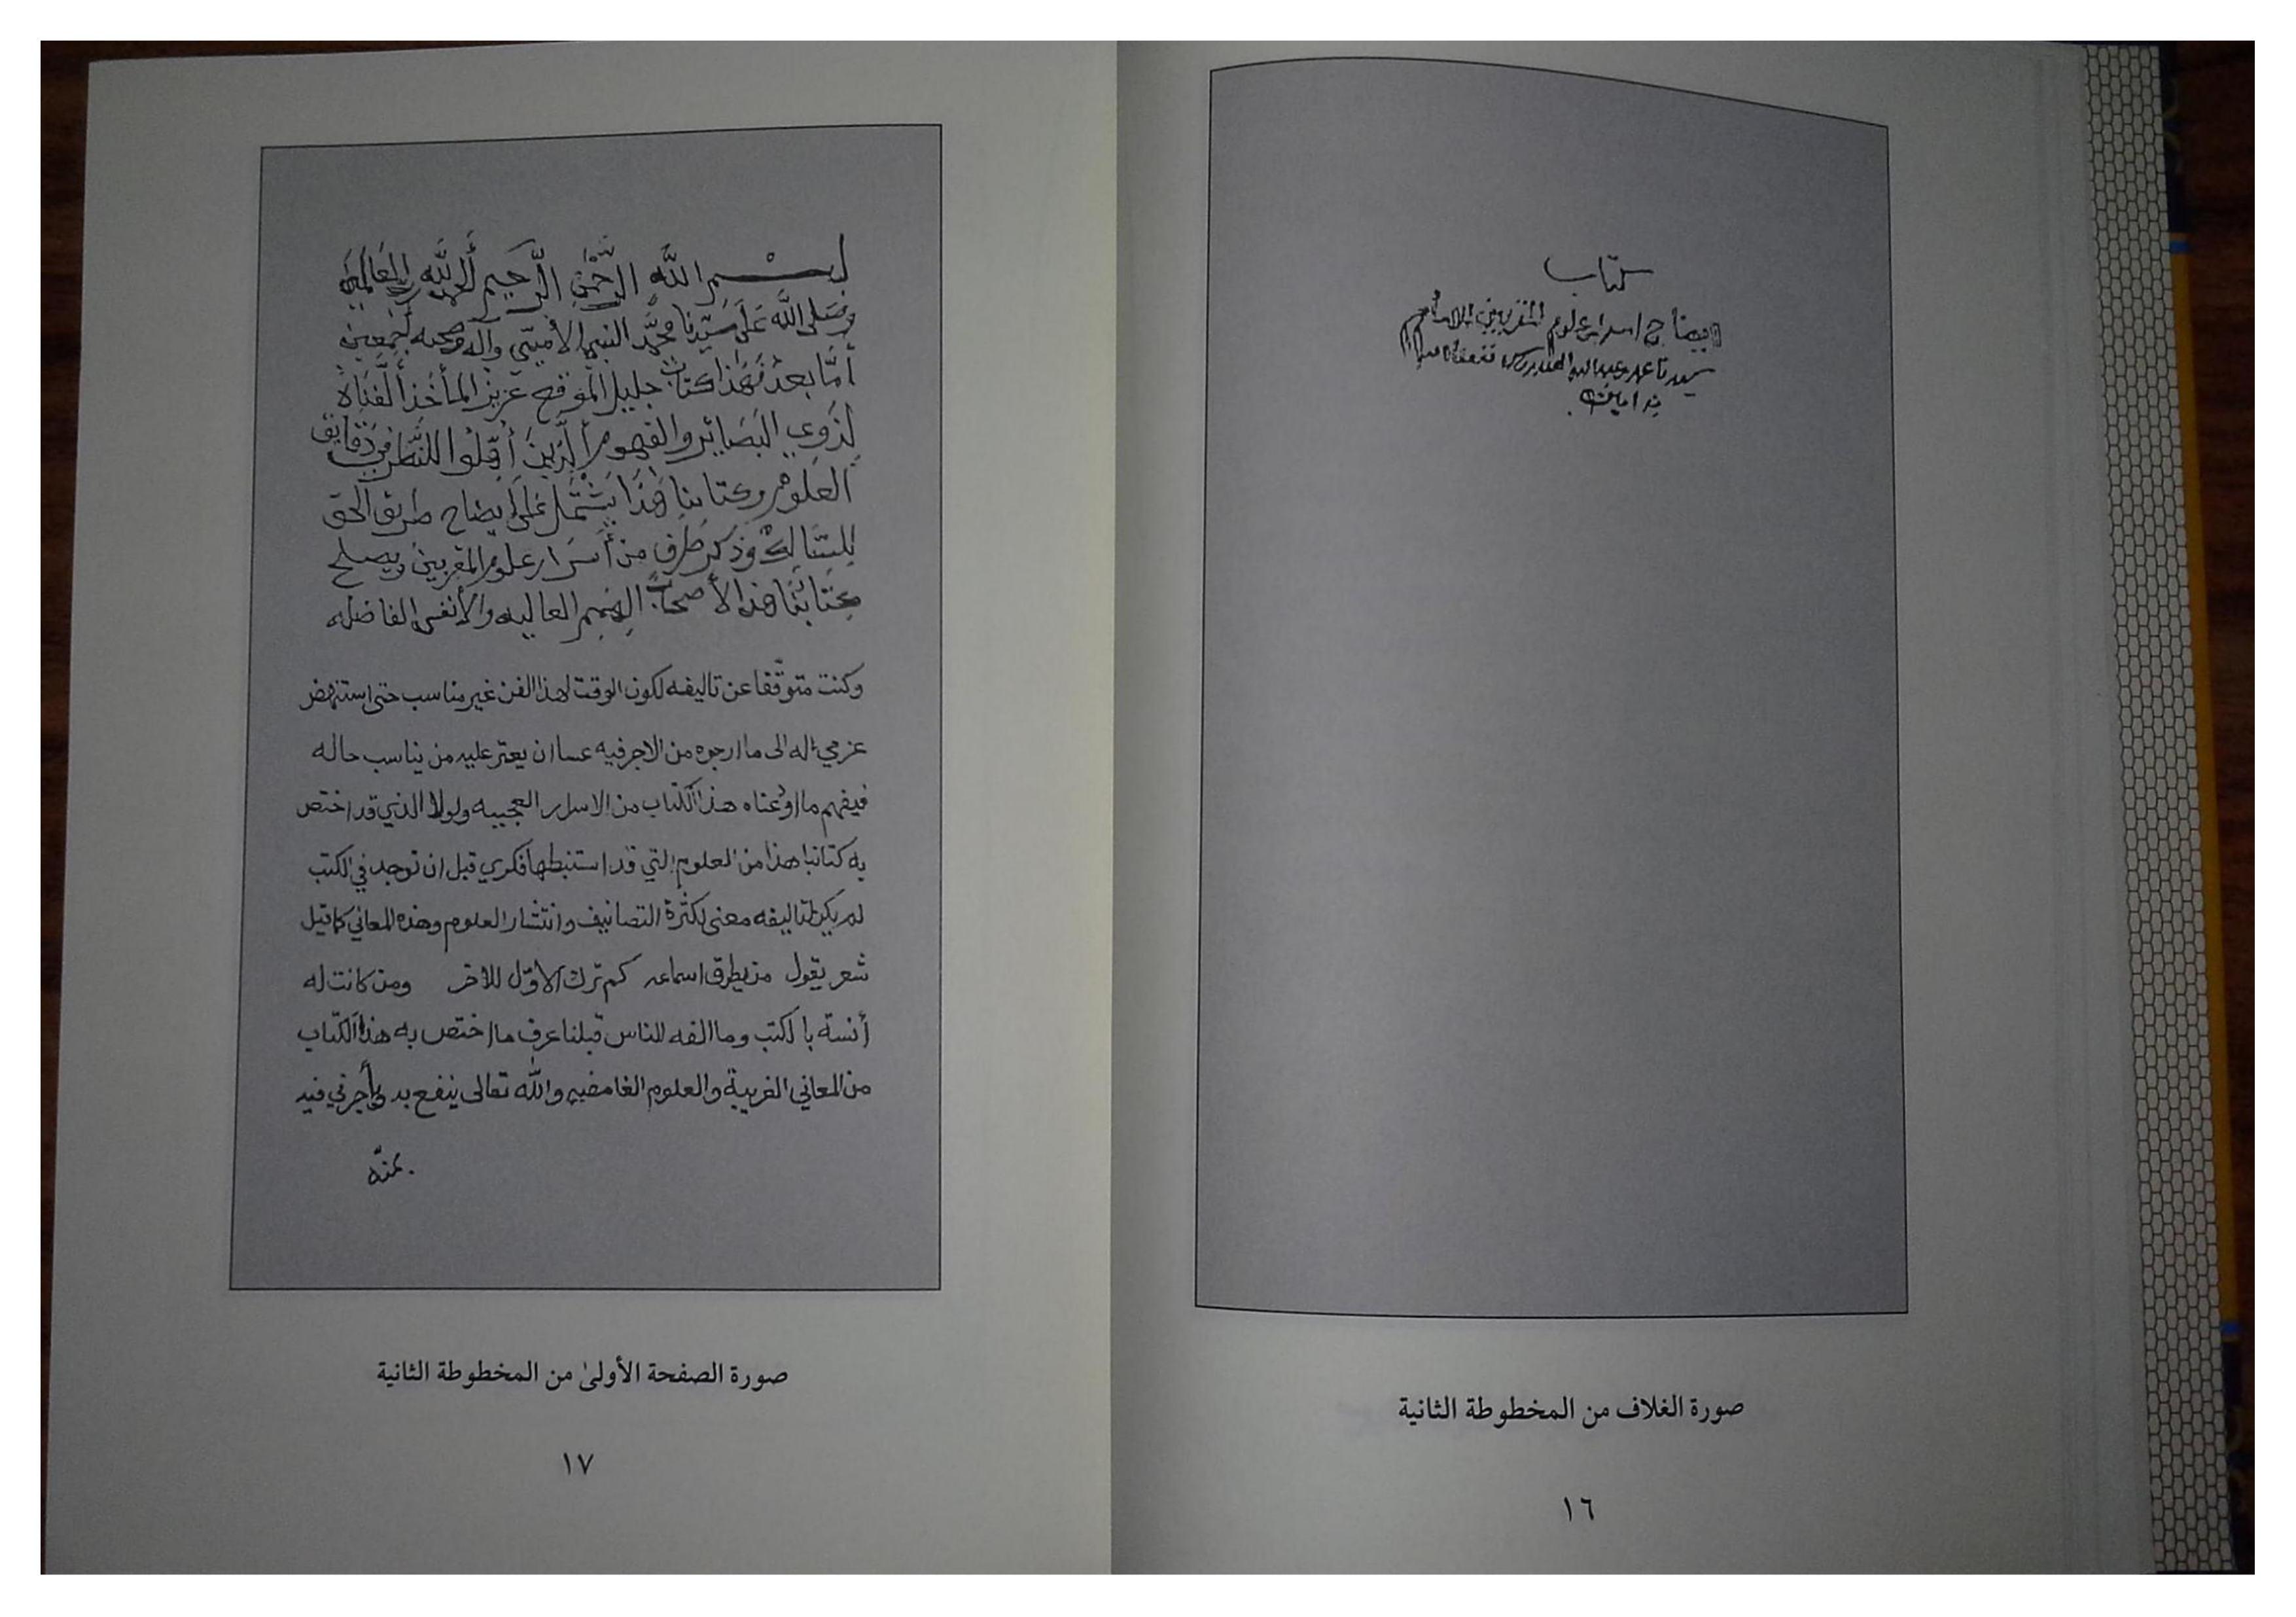 كتاب
ايضاح اسرار علوم المقربين للامام
سيدنا محمد بن عبدالله العيدروس نفعنا الله به
امين
صورة الغلاف من المخطوطة الثانية
١٦
بسم الله الرَّحْمٰنِ الرَّحيمِ أَلحمدُ لِلّهِ رَبِّ العَالَمِينَ
وَصَلى اللَّه عَلَى سَيّدِنا محمَّد النبي الأميّي وآله وصحبه أجمعين
أمَّا بعدُ فَهَذا كتابٌ جليل المَوقع عَزيز المأخَذِ أَلَّفنَاهُ
لِذَوي البَصَائِر والفهوم ألَّذينَ أهّلوا للنَّظر في دَقَايق
العُلوم وكتابنا هَذَا يَشْتَمل عَلَى إيضاح طريق الحق
لِلسَّالِك وَذكر طَرَف من أَسرَار علوم المقربين ويصلح
كِتابُنَا هذا لأصحَاب الهِمم العاليه والأنفس الفاضله
وكنت متوقّفا عن تاليفه لكون الوقت لهذا الفن غير مناسب حتى استنهض
عزمي له الى ما ارجوه من الاجر فيه عسا ان يعتر عليه من يناسب حاله
فيفهم ما اودعناه هذا الكتاب من الاسرار العجيبه ولولا الذي قد اختص
به كتابنا هذا من العلوم التي قد استنبطها فكري قبل ان توجد في الكتب
لم يكن لتاليفه معنى لكثرة التصانيف وانتشار العلوم وهذه المعاني كما قيل
شعر يقول من يطرق اسماعه كم ترك الاوّل للاخر ومن كانت له
أنسة با لكتب وما الفه الناس قبلنا عرف ما اختص به هذا الكتاب
من المعاني الغريبة والعلوم الغامضه واللّه تعالى ينفع به ويأجرني فيه
بمنّه
صورة الصفحة الأولىٰ من المخطوطة الثانية
١٧